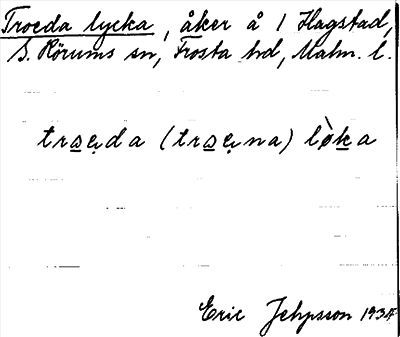 Troeda lycka, åker å 1 Hagstad,
S. Rörums sn, Frosta hd, Malm. l.
traeda (traena) lòka
Eric Jehpsson 1934